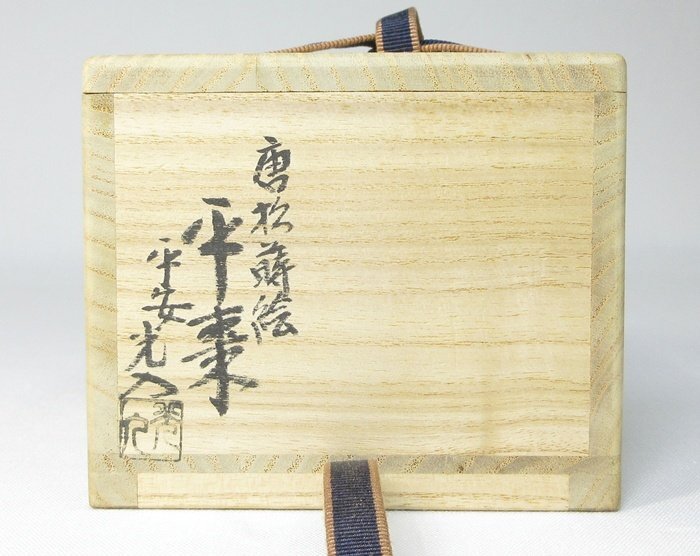 唐松蒔絵
平棗
平安光入
光入